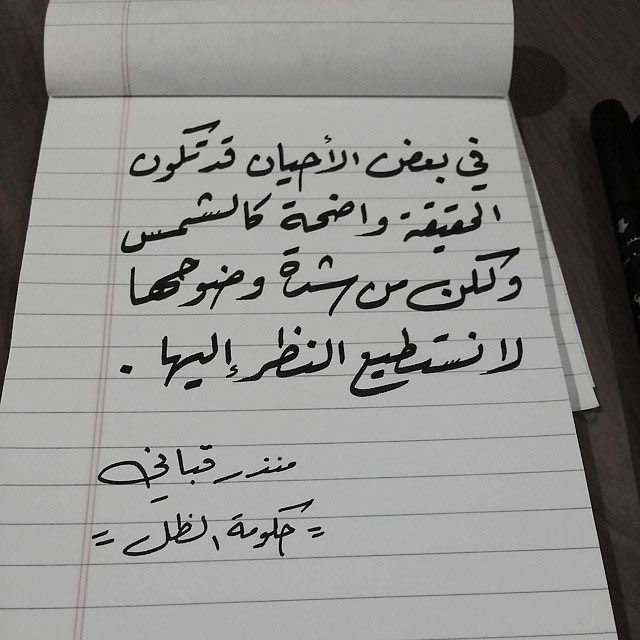 في بعض الأحيان قد تكون
الحقيقة واضحة كالشمس
ولكن من شدة وضوحها
لا نستطيع النظر إليها .
منذر قباني
= حكومة الظل =